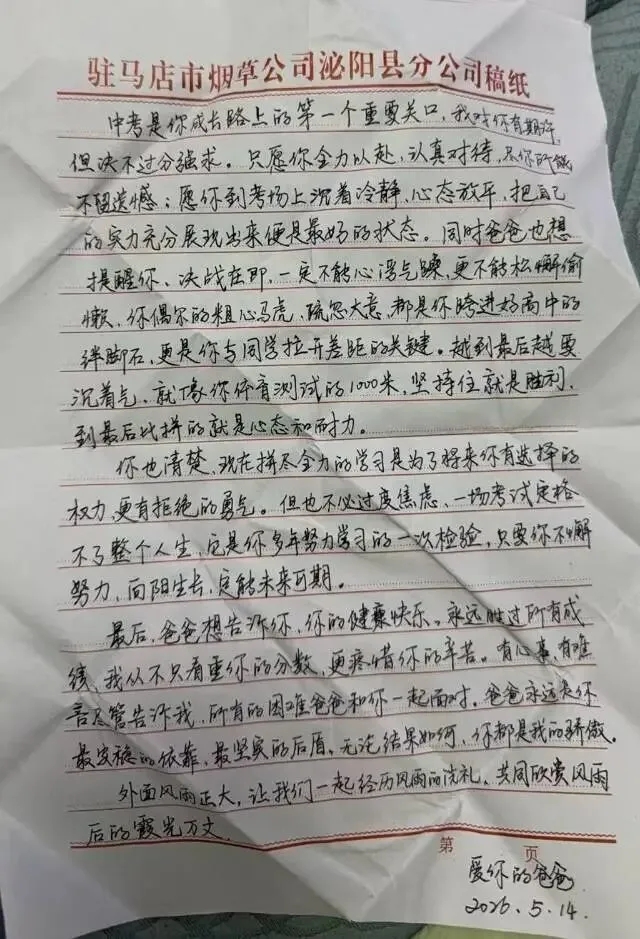 驻马店市烟草公司泌阳县分公司稿纸
中考是你成长路上的第一个重要关口，我对你有期许，
但决不过分强求。只愿你全力以赴，认真对待，尽你所能
不留遗憾；愿你到考场上沉着冷静、心态放平，把自己
的实力充分展现出来便是最好的状态。同时爸爸也想
提醒你、决战在即，一定不能心浮气躁、更不能松懈偷
懒、你偶尔的粗心马虎、疏忽大意，都是你跨进好高中的
绊脚石，更是你与同学拉开差距的关键。越到最后越要
沉着气，就像你体育测试的1000米，坚持住就是胜利，
到最后比拼的就是心态和耐力。
你也清楚，现在拼尽全力的学习是为了将来你有选择的
权力，更有拒绝的勇气。但也不必过度焦虑、一场考试定格
不了整个人生，它是你多年努力学习的一次检验。只要你不懈
努力、向阳生长、定能未来可期。
最后，爸爸想告诉你，你的健康快乐。永远胜过所有成
绩，我从不只看重你的分数，更疼惜你的辛苦。有心事、有难
言尽管告诉我，所有的困难爸爸和你一起面对。爸爸永远是你
最安稳的依靠，最坚实的后盾。无论结果如何，你都是我的骄傲。
外面风雨正大，让我们一起经历风雨的洗礼。共同欣赏风雨
后的霞光万丈
第 页
爱你的爸爸
2026.5.14.